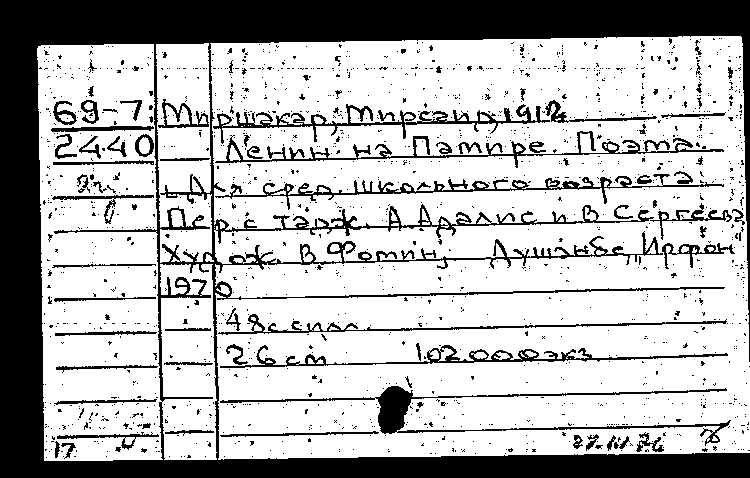 69-7 Миршакар, Мирсаид, 1912
2440 Ленин на Памире. Поэма.
Для сред. школьного возраста
Пер. с тадж. А. Адалис и В. Сергеева
Худож. В. Фомин, Душанбе, "Ирфон"
1970
48 с. с илл.
26 см 102000 экз.
17 27.III.76